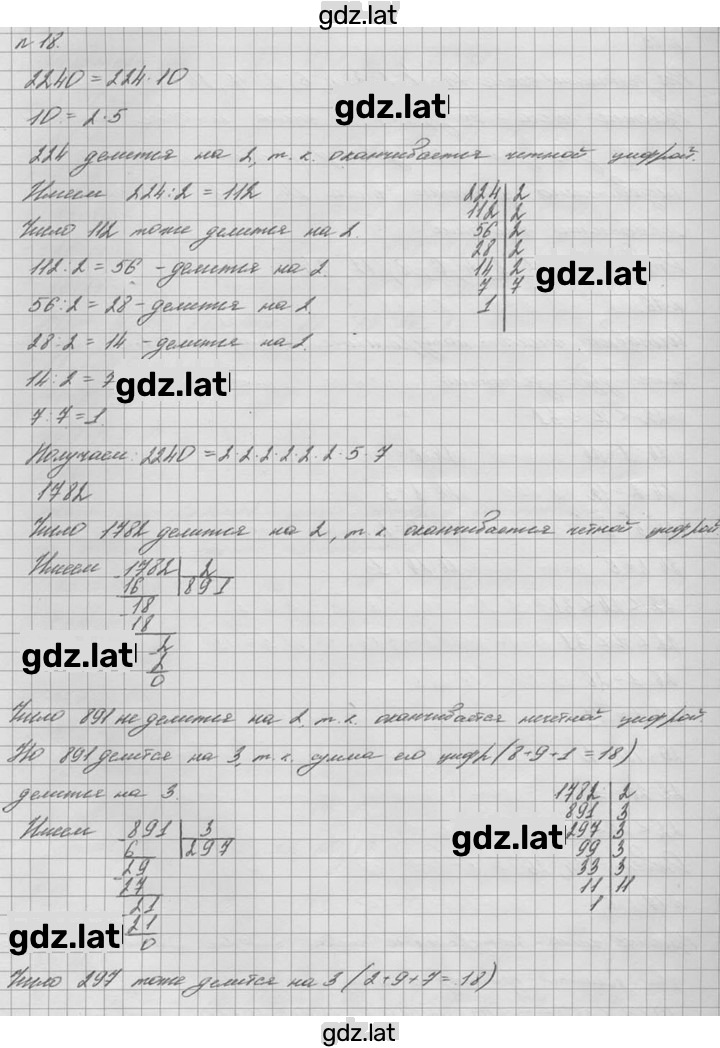 gdz.lat
№ 18.
2240 = 224·10
gdz.lat
10 = 2·5
224 делится на 2, т.к. оканчивается четной цифрой.
Имеем 224:2 = 112
224 | 2
112 | 2
56 | 2
28 | 2
14 | 2
7 | 7
1
gdz.lat
Число 112 тоже делится на 2.
112:2 = 56 - делится на 2.
56:2 = 28 - делится на 2.
28:2 = 14 - делится на 2.
14:2 = 7
gdz.lat
7:7 = 1.
Получаем: 2240 = 2·2·2·2·2·2·5·7
1782
Число 1782 делится на 2, т.к. оканчивается четной цифрой
Имеем 1782 | 2
16 | 891
18
18
gdz.lat
2
2
0
Число 891 не делится на 2, т.к. оканчивается нечетной цифрой.
Но 891 делится на 3, т.к. сумма его цифр (8+9+1=18)
делится на 3.
1782 | 2
891 | 3
297 | 3
99 | 3
33 | 3
11 | 11
1
gdz.lat
Имеем 891 | 3
6 | 297
29
27
21
21
0
gdz.lat
Число 297 тоже делится на 3 (2+9+7=18)
gdz.lat